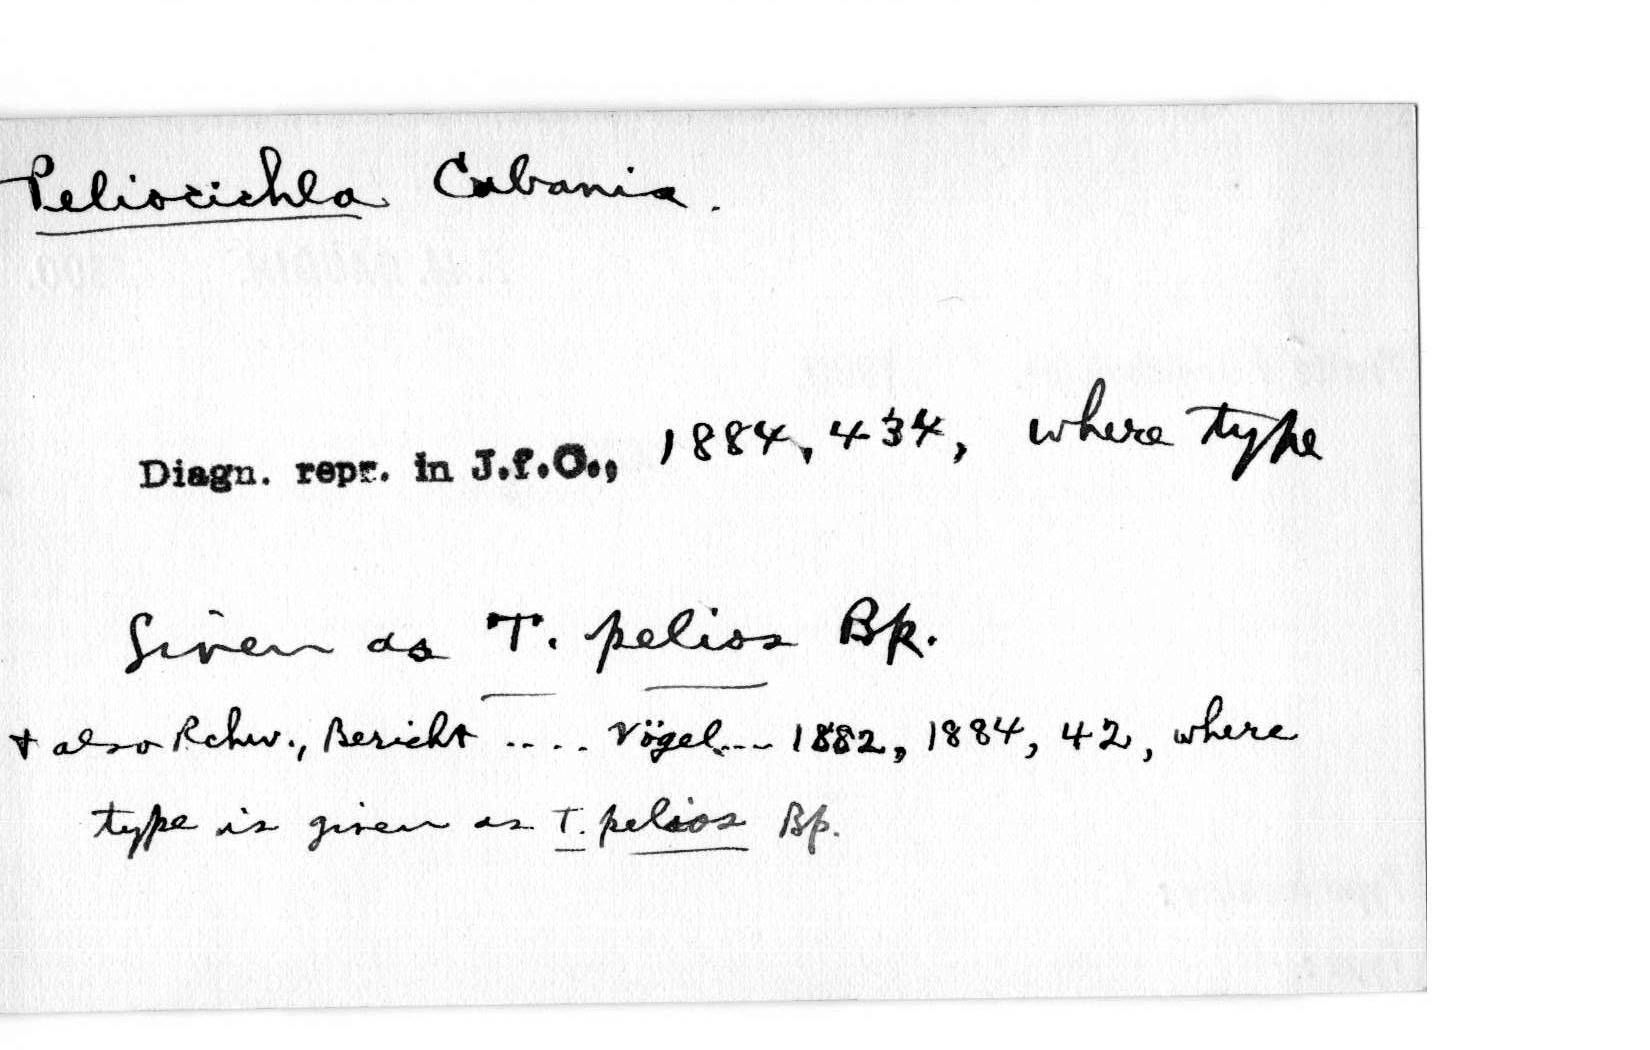 Peliocichla Cabanis.
Diagn. repr. in J.f.O., 1884, 434, where type
Given as T. pelios Bp.
+ also Rchw., Bericht .... Vögel... 1882, 1884, 42, where
type is given as T. pelios Bp.